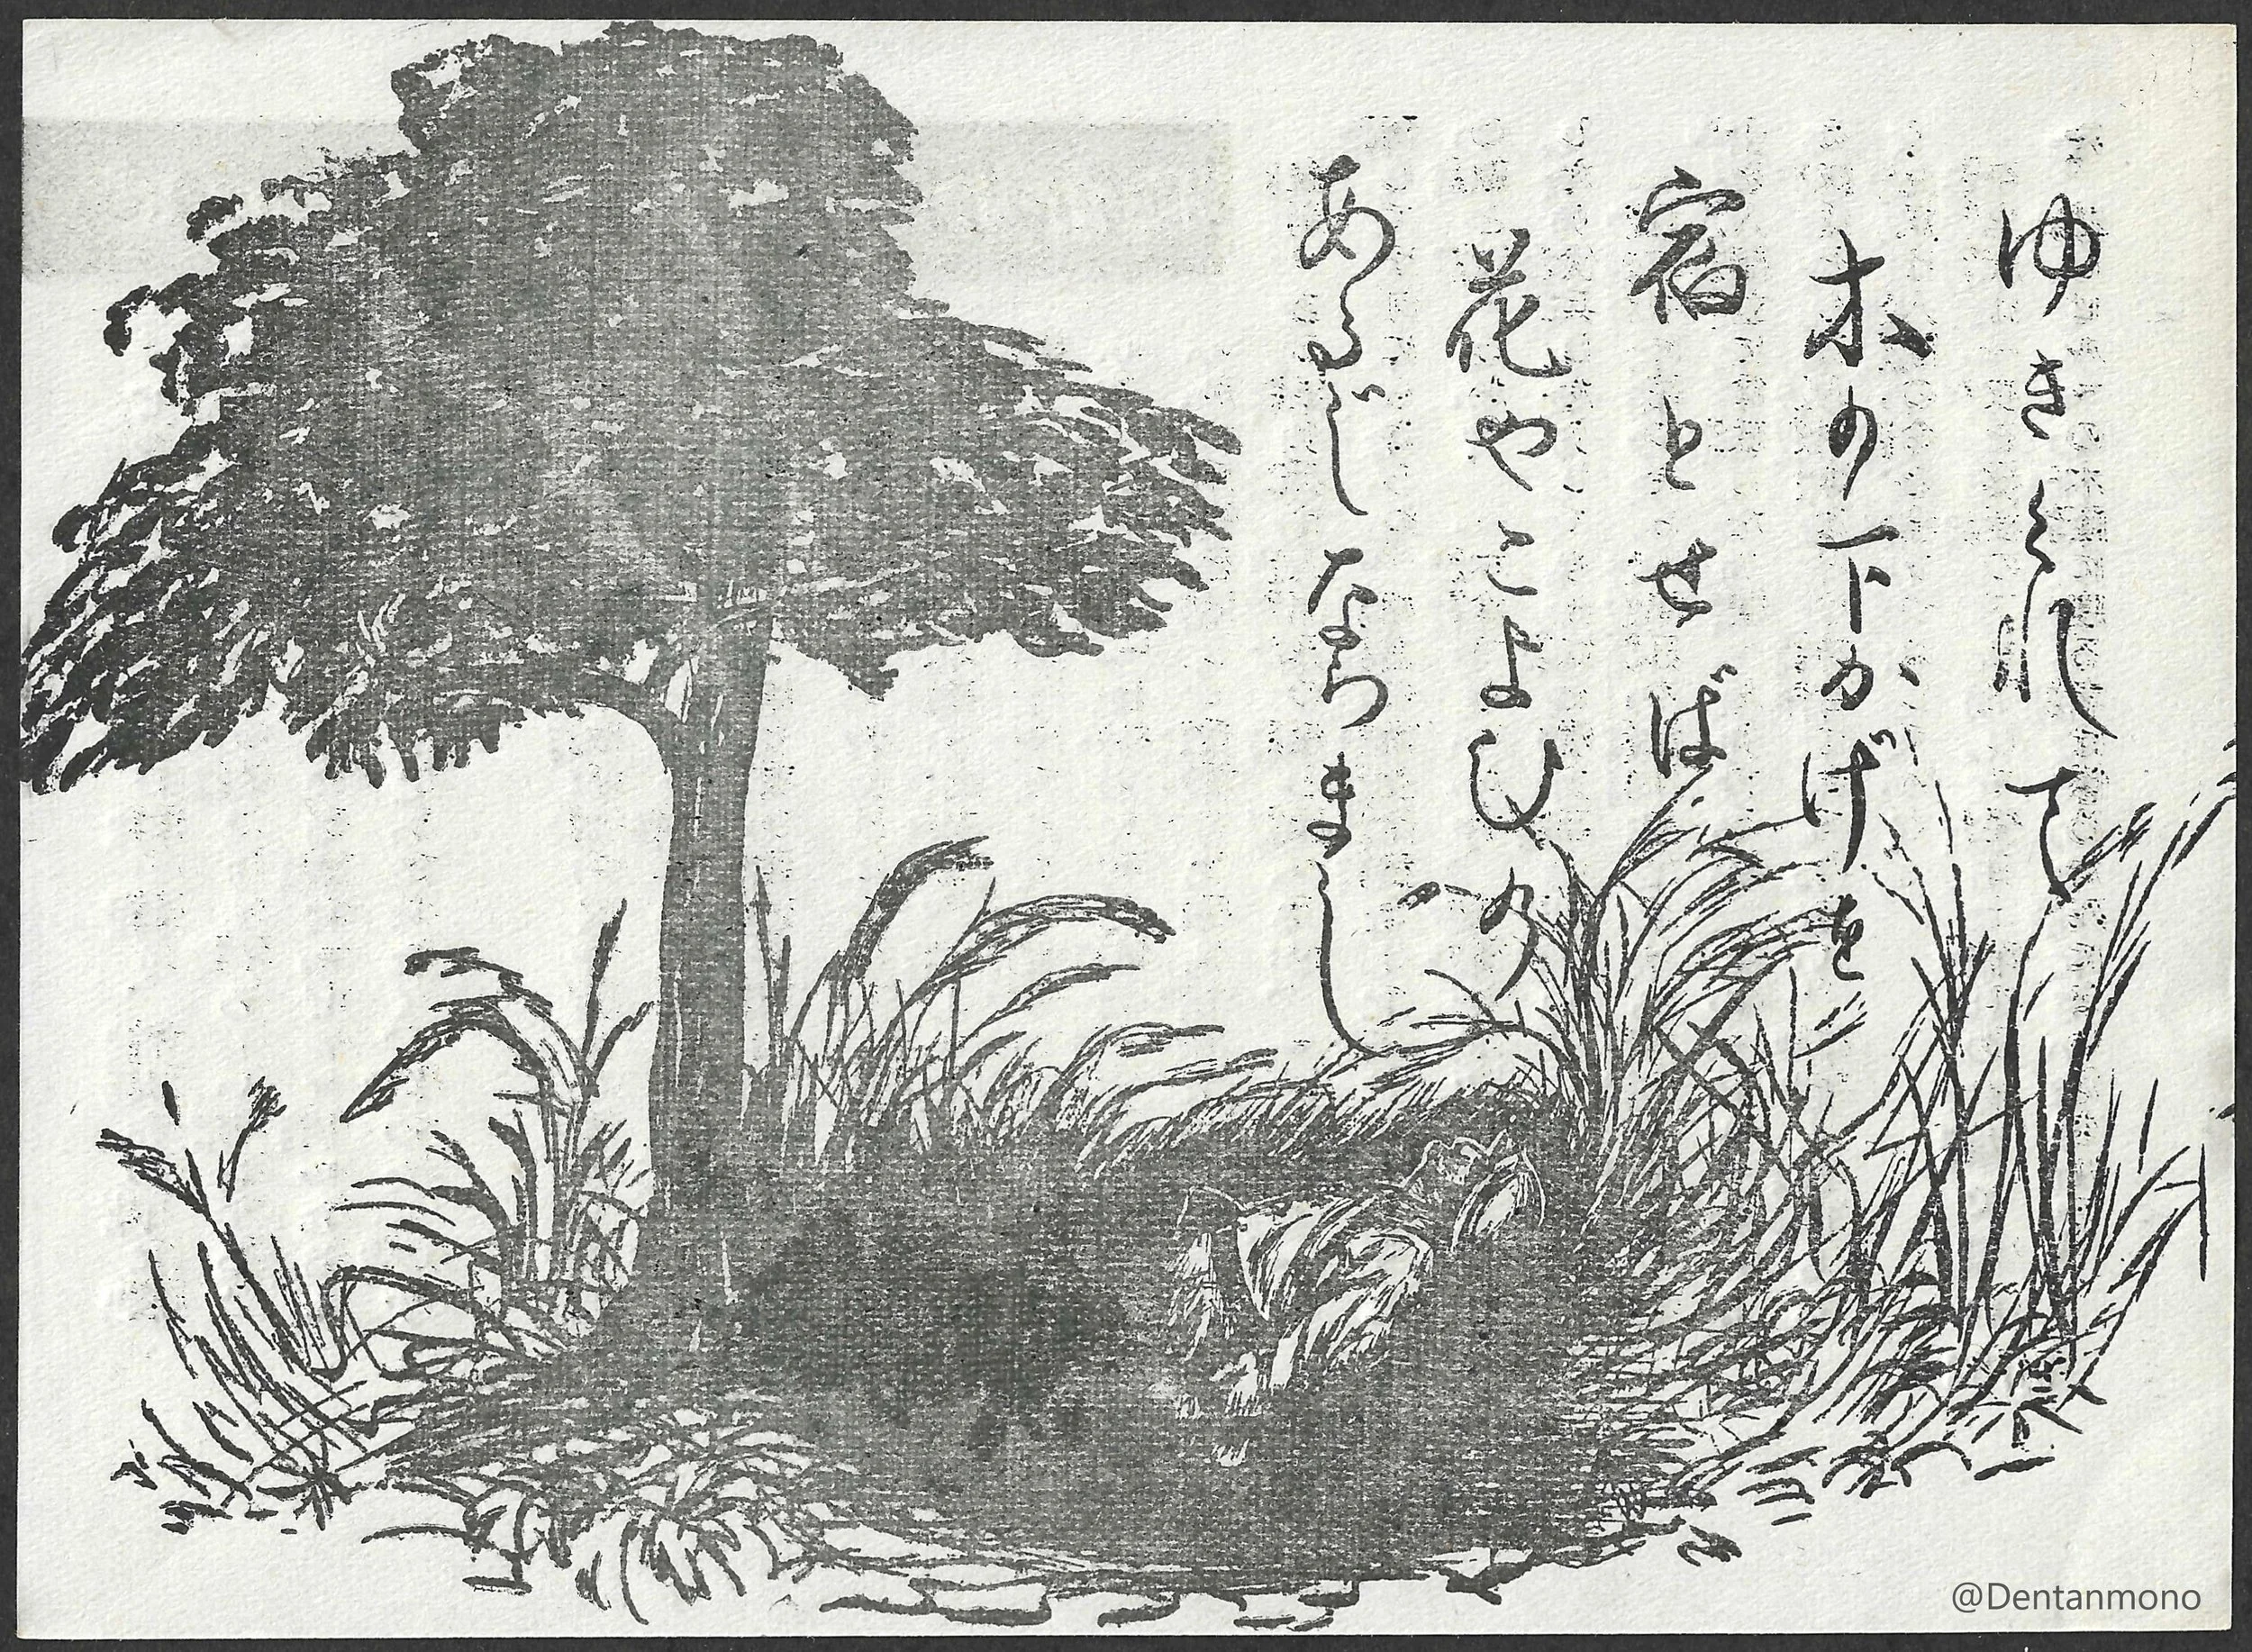 ゆきくれて
木の下かげを
宿とせば
花やこよひの
あるじならまし
@Dentanmono